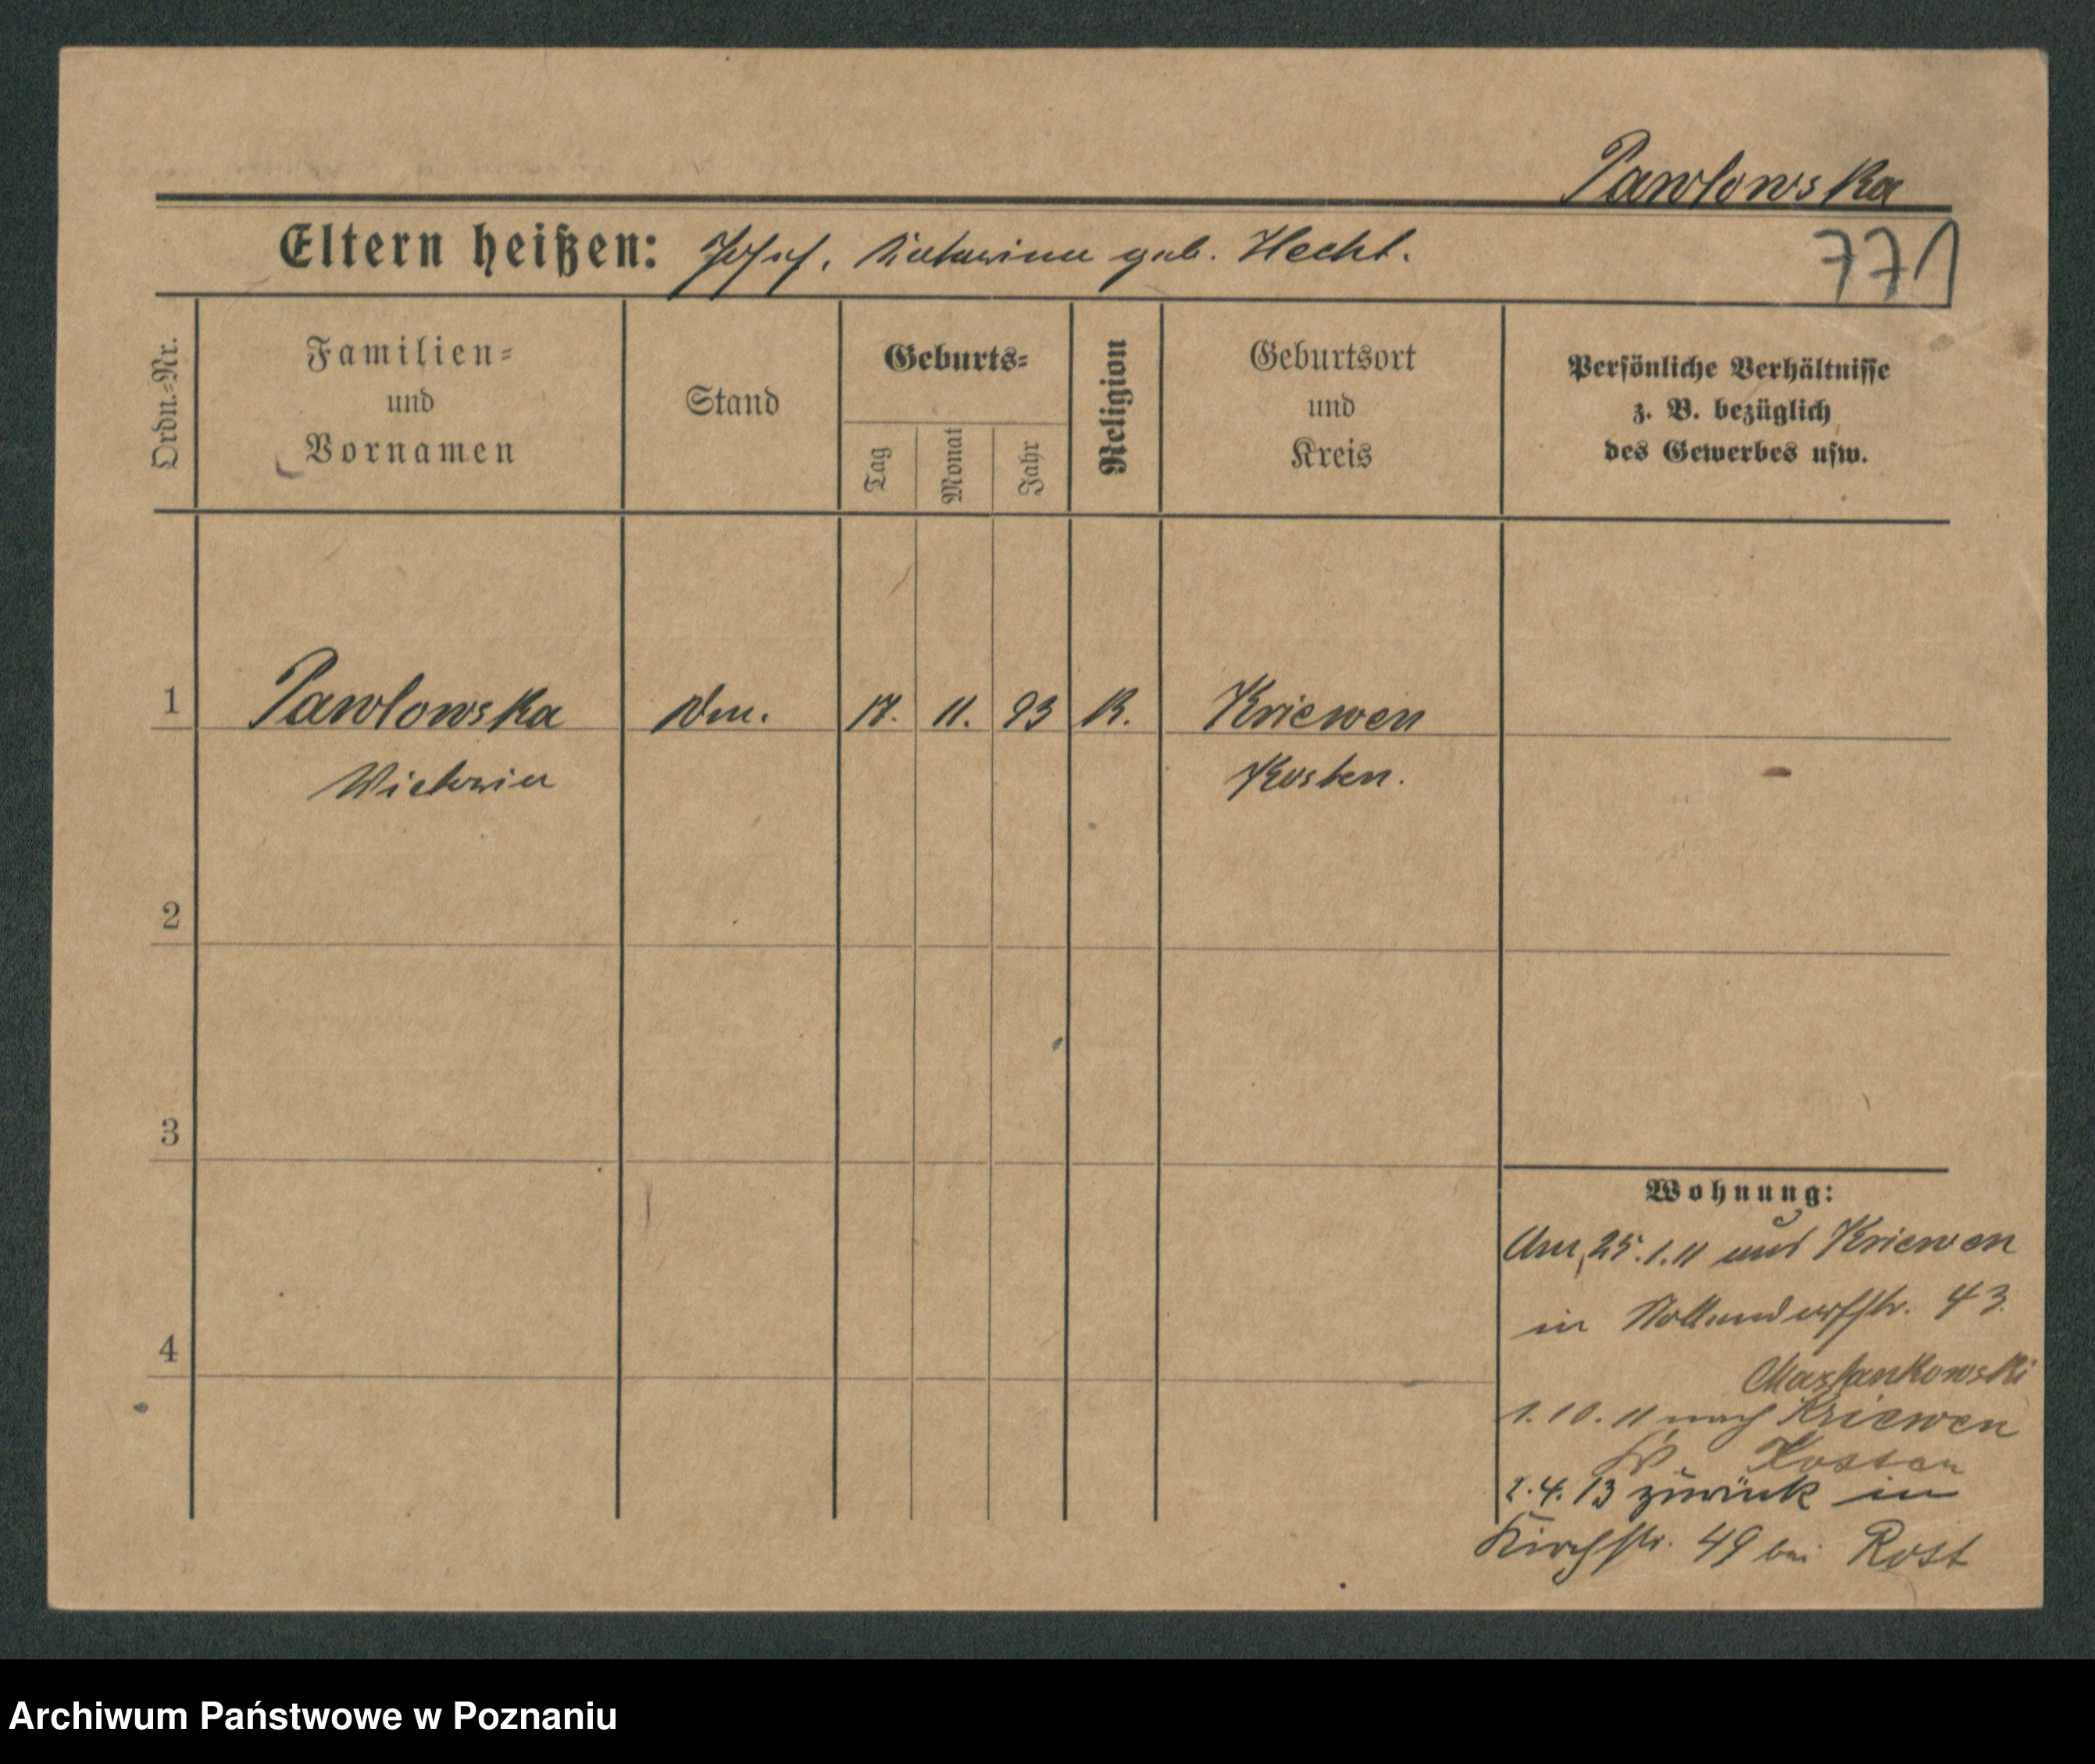 Pawlowska
Eltern heißen: Josef, Katarina geb. Hecht.
771
Ordn.-Nr.
Familien-
und
Vornamen
Stand
Geburts-
Tag
Monat
Jahr
Religion
Geburtsort
und
Kreis
Persönliche Verhältnisse
z. B. bezüglich
des Gewerbes usw.
1 Pawlowska 11. 93 K. Kriewen
Victoria Kosten.
2
3
4
Wohnung:
25.1.11 aus Kriewen
in Nollendorfstr. 43.
1.10.11 nach Kriewen
Kr. Kosten
1.4.13 zurück in
Kirchstr. 49 bei Rost
Archiwum Państwowe w Poznaniu